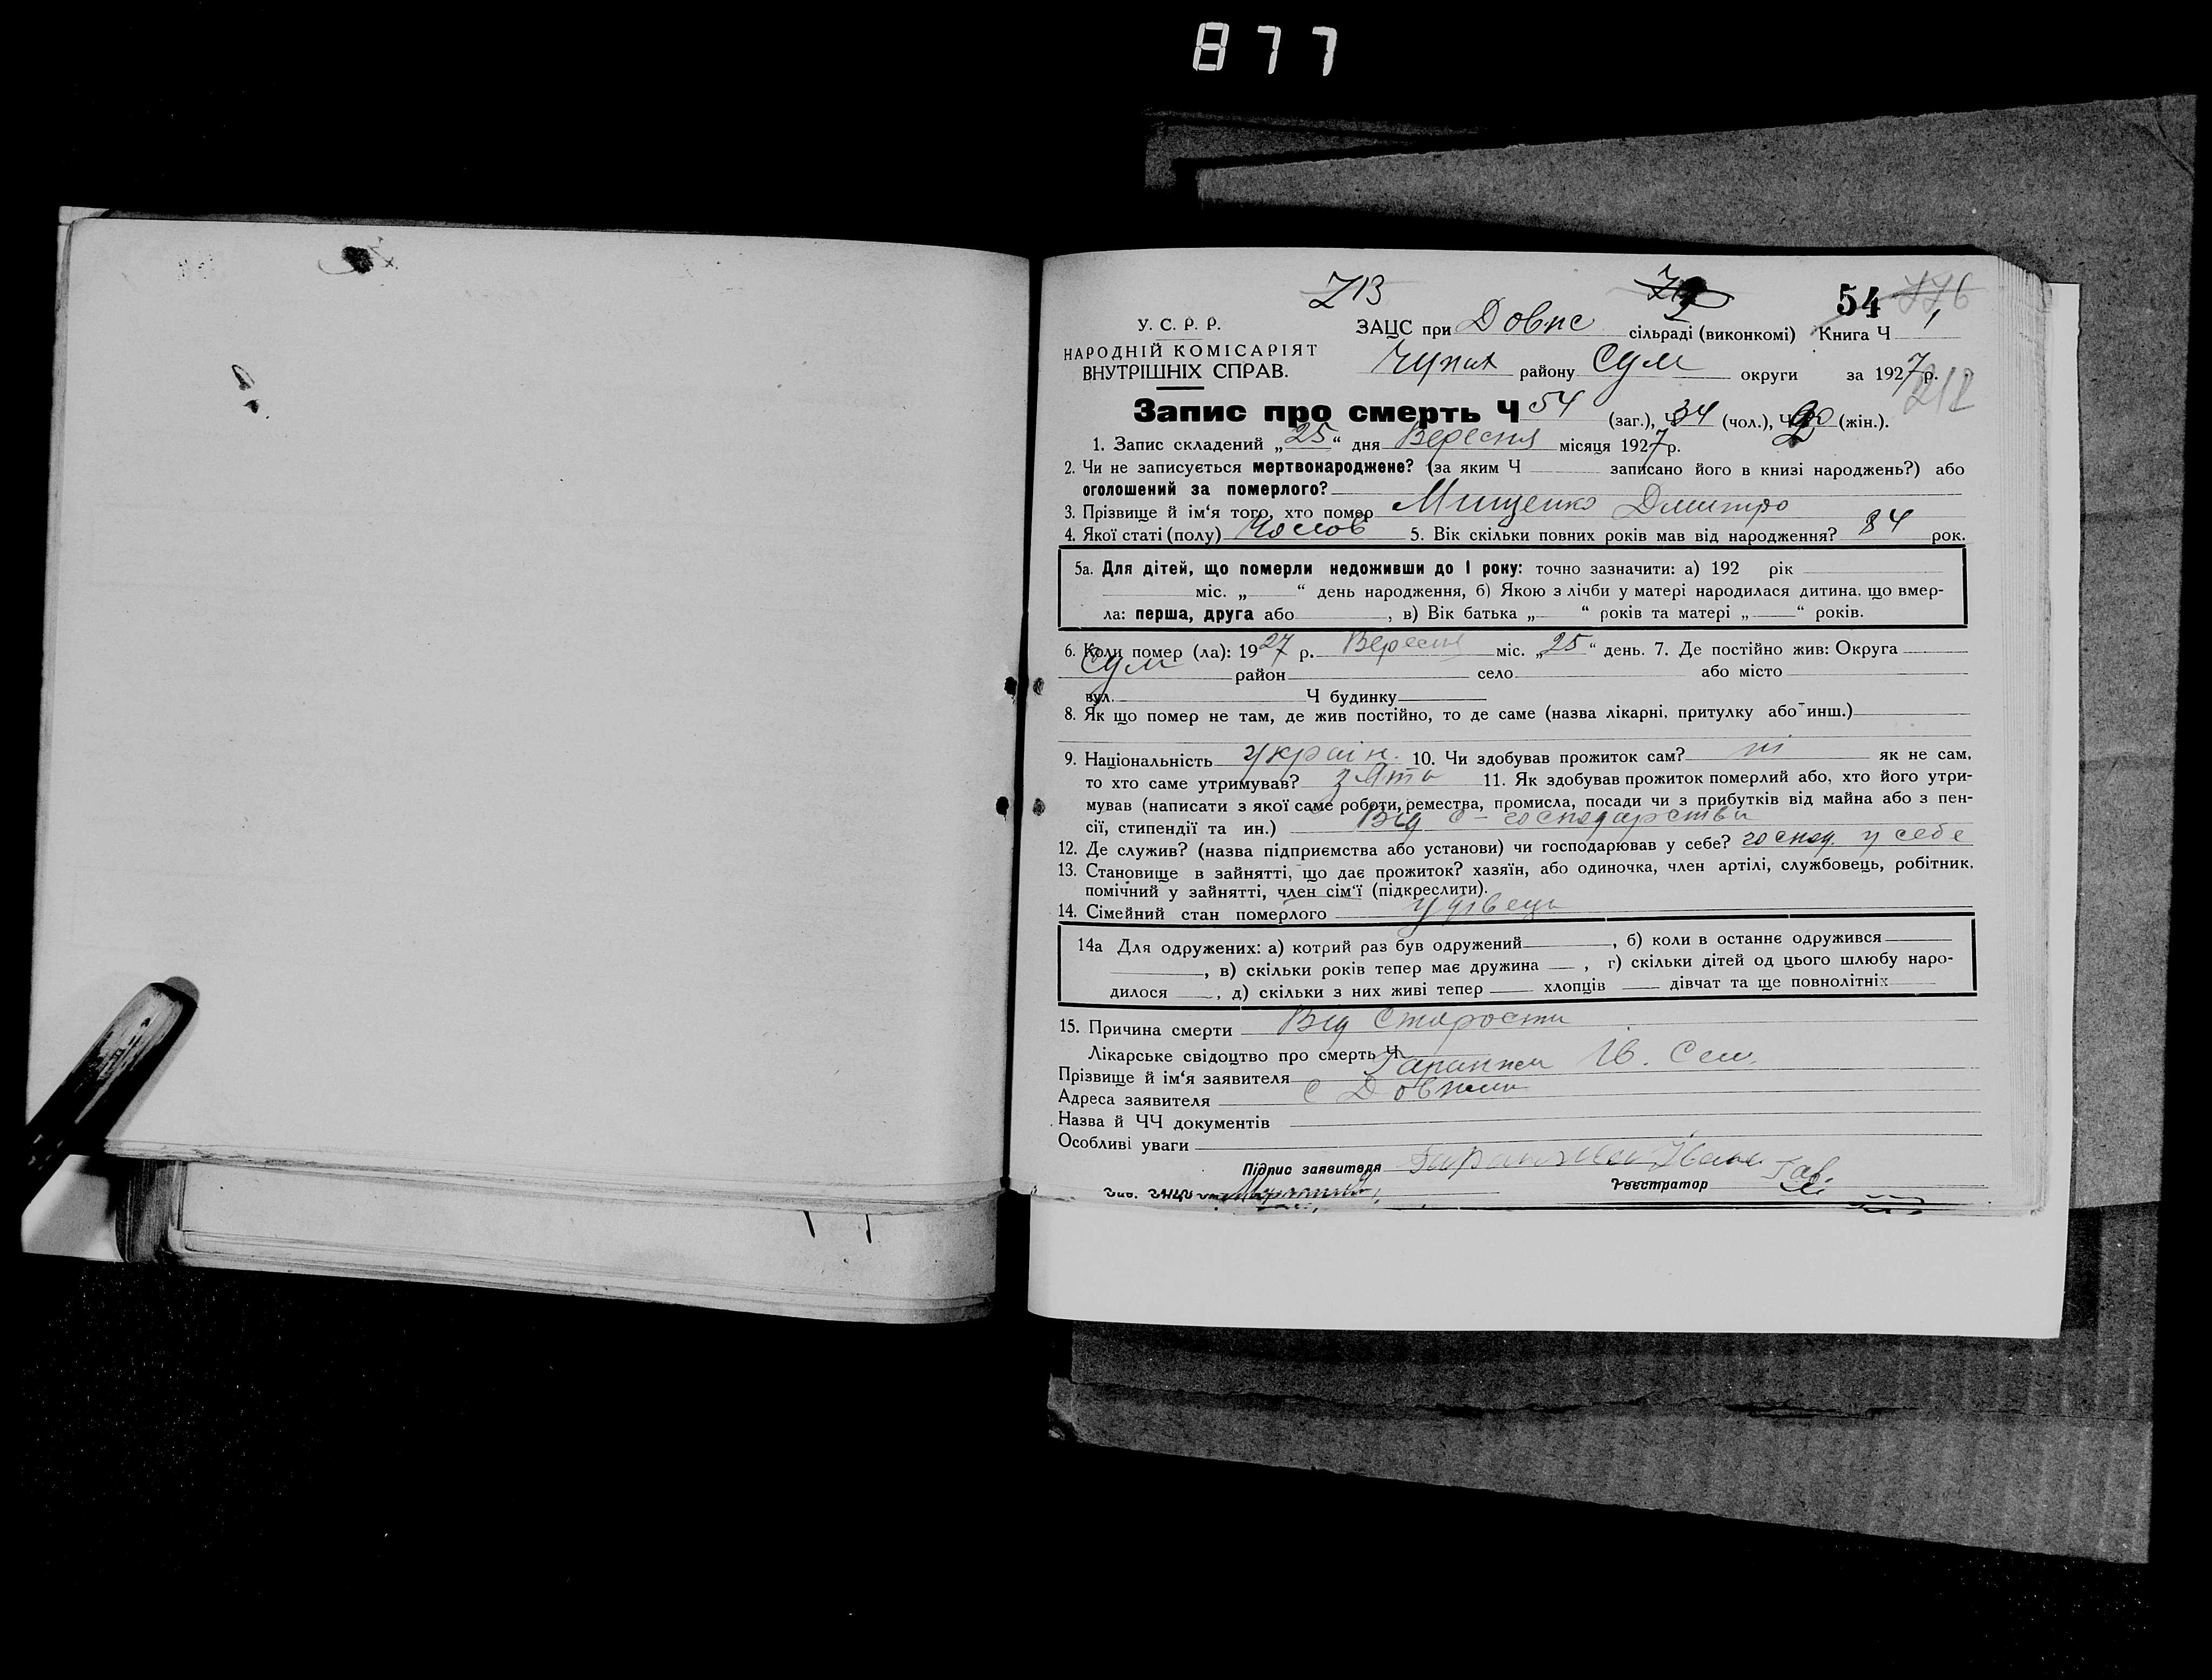 877
213
54 776
У. С. Р. Р.
НАРОДНІЙ КОМІСАРІЯТ
ВНУТРІШНІХ СПРАВ.
ЗАЦС при Довж сільраді (виконкомі) Книга Ч 1
Чупах району Сум округи за 1927 р.
212
Запис про смерть Ч 54 (заг.), Ч 34 (чол.), Ч (жін.).
1. Запис складений „25“ дня Вересня місяця 1927 р.
2. Чи не записується мертвонароджене? (за яким Ч записано його в книзі народжень?) або
оголошений за померлого?
3. Прізвище й ім'я того, хто помер Мищенко Дмитро
4. Якої статі (полу) Чолов 5. Вік скільки повних років мав від народження? 84 рок.
5а. Для дітей, що померли недоживши до 1 року: точно зазначити: а) 192 рік
міс. „ “ день народження, б) Якою з лічби у матері народилася дитина, що вмер-
ла: перша, друга або , в) Вік батька „ “ років та матері „ “ років.
6. Коли помер (ла): 1927 р. Вересня міс. „25“ день. 7. Де постійно жив: Округа
Сум район село або місто
вул. Ч будинку
8. Як що помер не там, де жив постійно, то де саме (назва лікарні, притулку або инш.)
9. Національність україн. 10. Чи здобував прожиток сам? ні як не сам,
то хто саме утримував? зять 11. Як здобував прожиток померлий або, хто його утри-
мував (написати з якої саме роботи, ремества, промисла, посади чи з прибутків від майна або з пен-
сії, стипендії та ин.) Від с-господарства
12. Де служив? (назва підприємства або установи) чи господарював у себе? господ. у себе
13. Становище в зайнятті, що дає прожиток? хазяїн, або одиночка, член артілі, службовець, робітник,
помічний у зайнятті, член сім'ї (підкреслити).
14. Сімейний стан померлого удівець
14а Для одружених: а) котрий раз був одружений , б) коли в останнє одружився
, в) скільки років тепер має дружина , г) скільки дітей од цього шлюбу наро-
дилося , д) скільки з них живі тепер хлопців дівчат та ще повнолітніх
15. Причина смерти Від старости
Лікарське свідоцтво про смерть Ч
Прізвище й ім'я заявителя Гаранжа Ів. Сем.
Адреса заявителя с Довжик
Назва й ЧЧ документів
Особливі уваги
Підпис заявителя Гаранжа Іван
Реєстратор